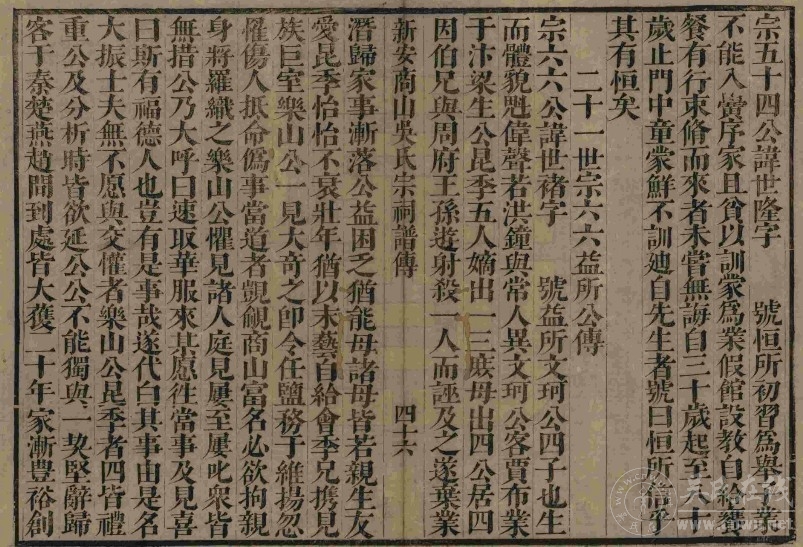 宗五十四公諱世隆字　號恒所初習為舉子業
不能入黌序家且貧以訓蒙為業假館設教自給饔
餐有行束脩而來者未嘗無誨自三十歲起至八十
歲止門中童蒙鮮不訓廸自先生者號曰恒所信乎
其有恒矣
二十一世宗六六益所公傳
宗六六公諱世禇字　號益所文珂公四子也生
而體貌魁偉聲若洪鐘與常人異文珂公客賈布業
于汴梁生公昆季五人嫡出一三庶母出四公居四
因伯兄與周府王孫遊射殺一人而誣及之遂葉業
新安商山吳氏宗祠譜傳　四十六
潛歸家事漸落公益困乏猶能母諸母皆若親生友
愛昆季怡怡不衰壯年猶以末藝自給會季兄携見
族巨室樂山公一見大奇之卽令任鹽務于維揚忽
懼傷人抵命僞事當道者覬覦商山富名必欲拘親
身將羅織之樂山公懼見諸人庭見屢至屢叱衆皆
無措公乃大呼曰速取華服來某愿徃當事及見喜
曰斯有福德人也豈有是事哉遂代白其事由是名
大振士夫無不愿與交懽者樂山公昆季者四皆禮
重公及分析時皆欲延公公不能獨與一契堅辭歸
客于秦楚燕趙間到處皆大獲二十年家漸豐裕創
吳氏在線